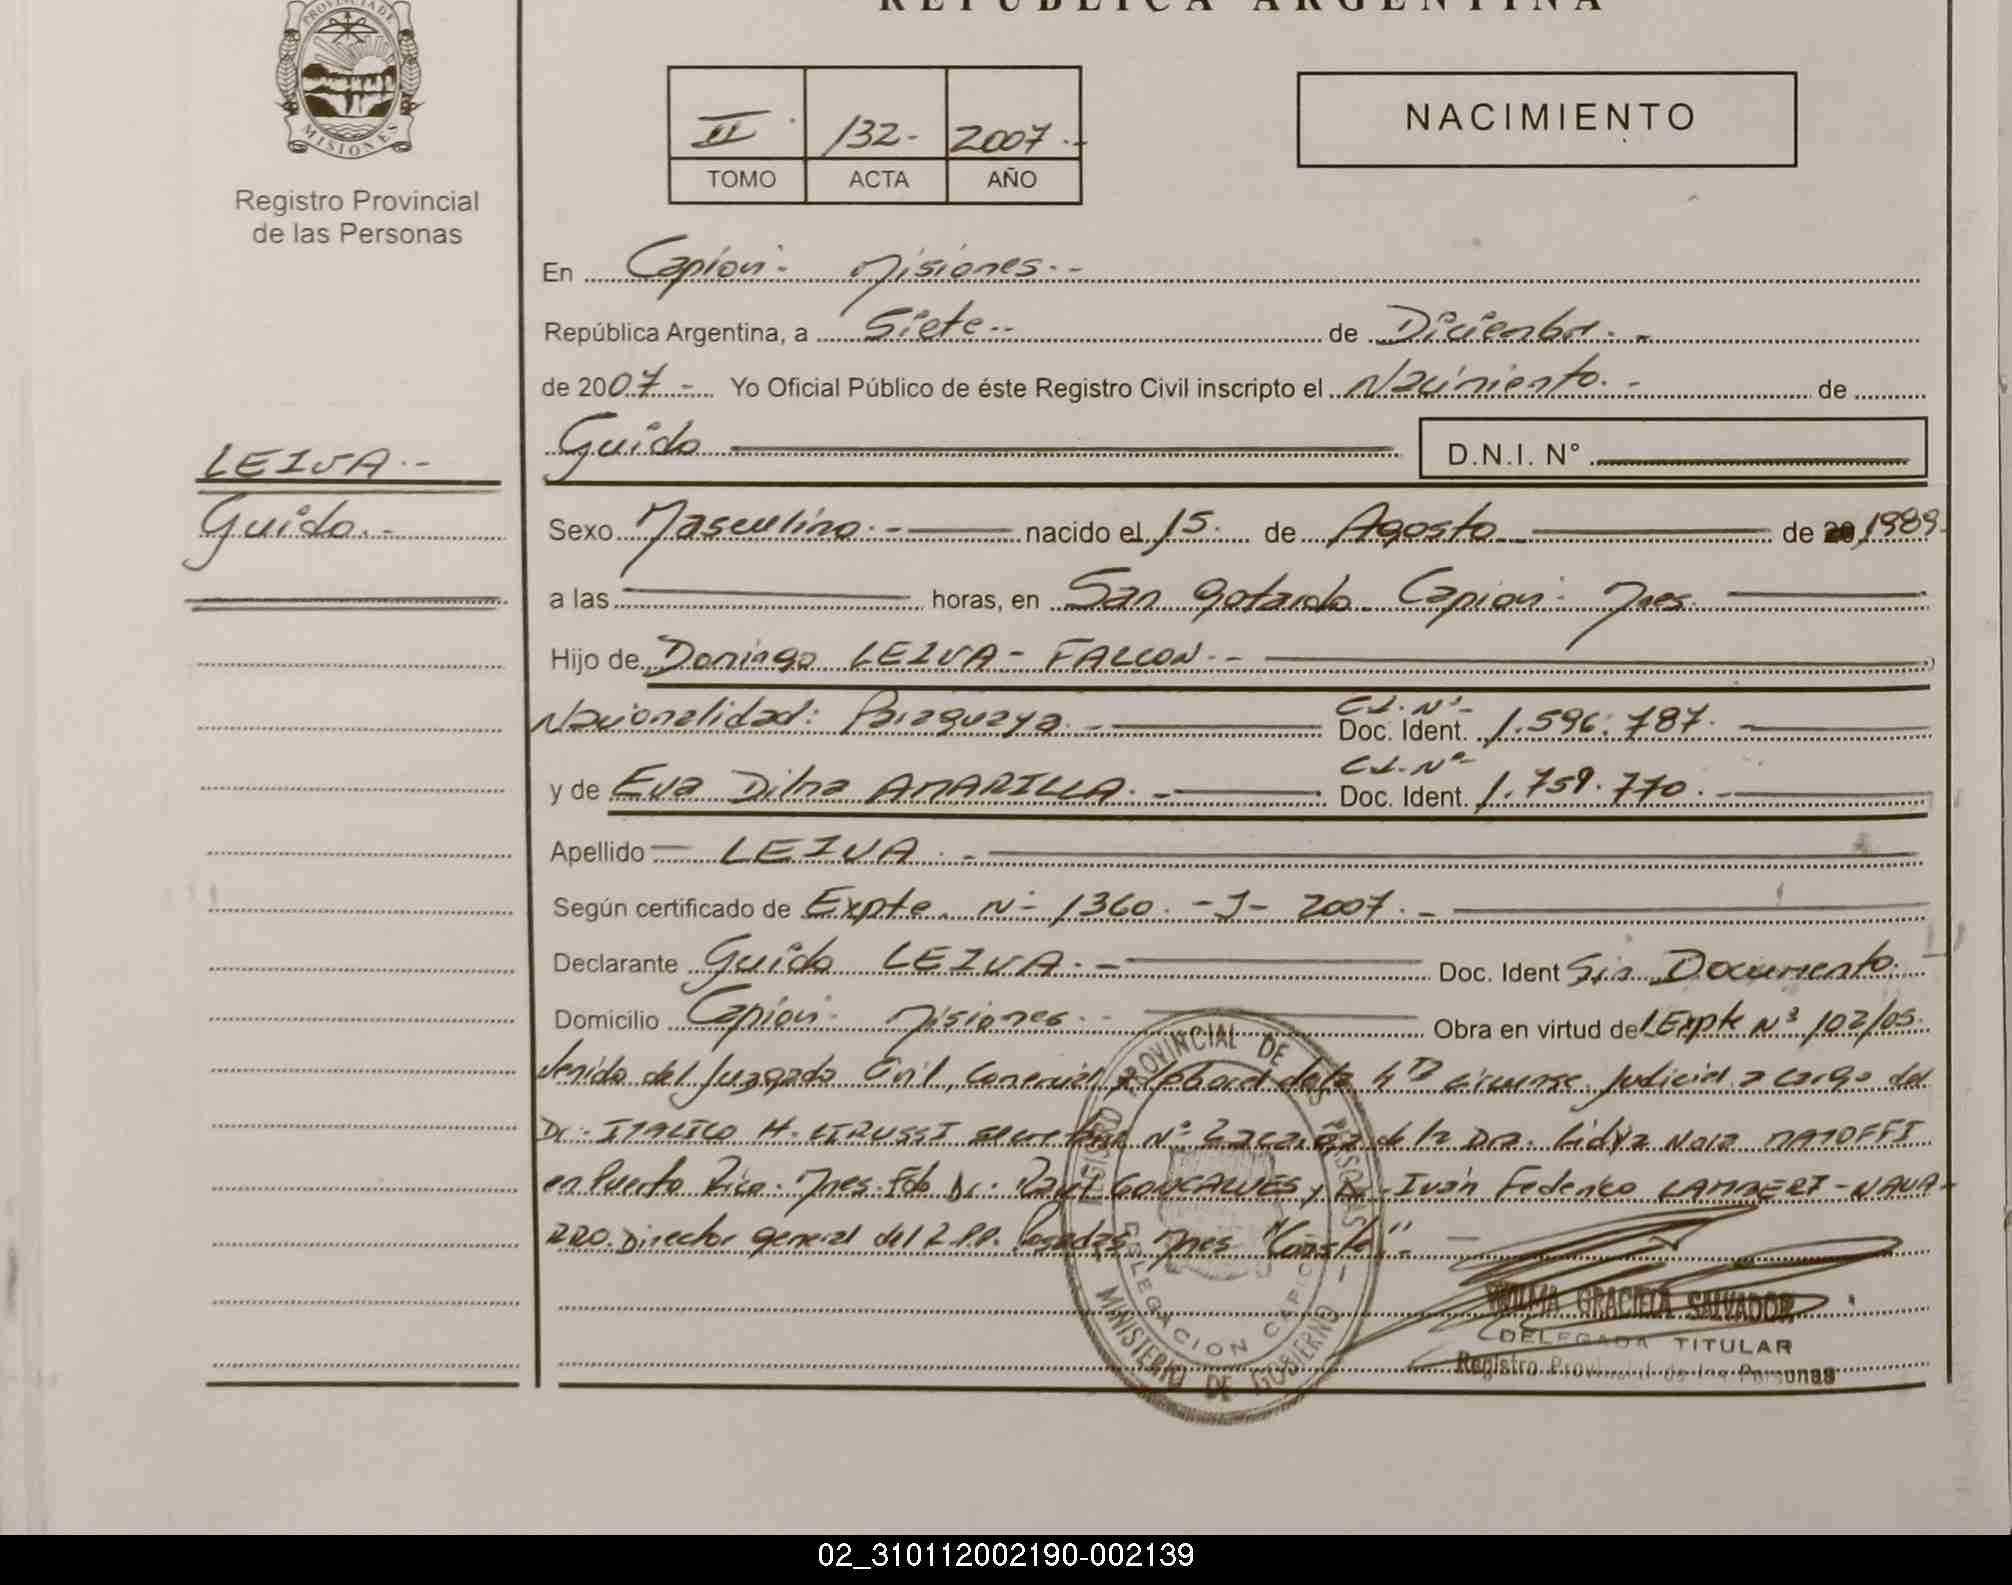 REPUBLICA ARGENTINA
PROVINCIA DE
MISIONES
Registro Provincial
de las Personas
II 132- 2007.-
TOMO ACTA AÑO
NACIMIENTO
En Capiovi- Misiones.-
República Argentina, a Siete.- de Diciembre.-
de 2007.- Yo Oficial Público de éste Registro Civil inscripto el Nacimiento.- de
Guido D.N.I. N°
LEIVA.-
Guido.-
Sexo Masculino.- nacido el 15. de Agosto de 20 1989.
a las horas, en San Gotardo. Capiovi- Mnes.
Hijo de Domingo LEIVA - FALCON.-
Nacionalidad: Paraguaya.- C.I. N°- Doc. Ident. 1.596.787.-
y de Eva Dilna AMARILLA.- C.I. N°- Doc. Ident. 1.759.770.-
Apellido LEIVA.-
Según certificado de Expte. N- 1360.-J- 2007.-
Declarante Guido LEIVA.- Doc. Ident Sin Documento.
Domicilio Capiovi- Misiones.- Obra en virtud del Expte N° 102/05.
venido del Juzgado Civil, Comercial y laboral de la 4ta circunsc. Judicial a cargo del
Dr. ITALICO H. CIRUSSI secretaria N° 2 a cargo de la Dra. Lidya Nora MATOFFI
en Puerto Rico. Mnes. Fdo Dr. GONCALVES y Dr. Iván Federico LAMBERT-NAVA-
RRO. Director general del R.P.P. Posadas Mnes "Conste".-
REGISTRO PROVINCIAL DE LAS PERSONAS
DELEGACION CAPIOVI
MINISTERIO DE GOBIERNO
WILMA GRACIELA SALVADOR
DELEGADA TITULAR
Registro Provincial de las Personas
02_310112002190-002139